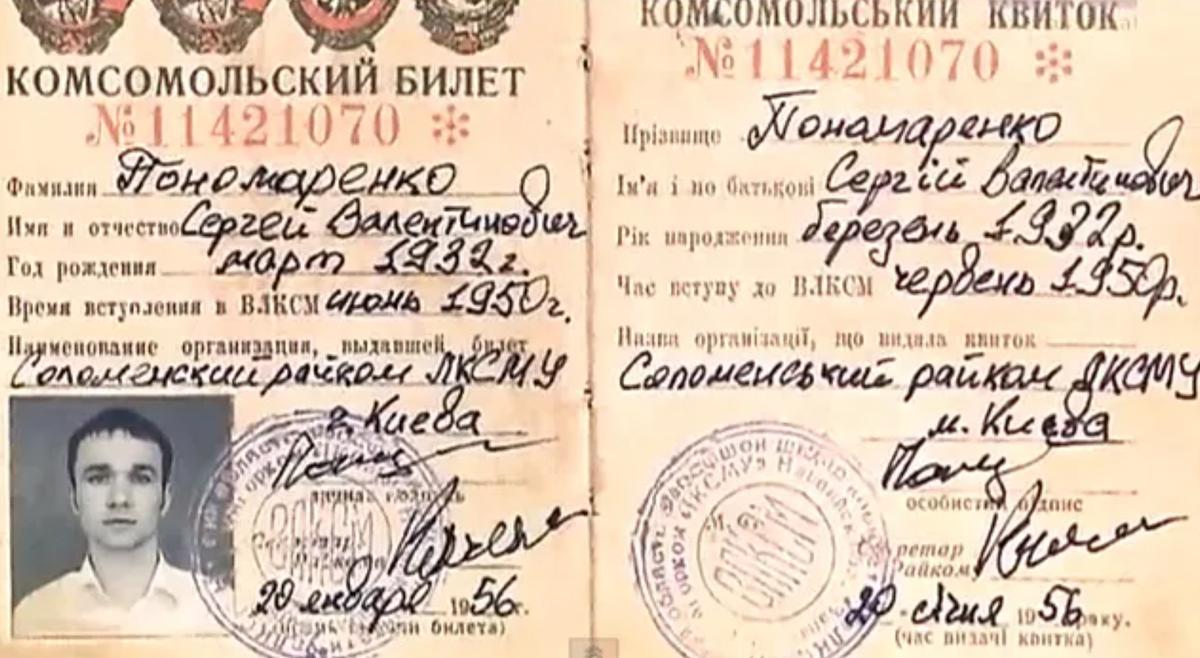 КОМСОМОЛЬСКИЙ БИЛЕТ
№11421070 *
Фамилия Пономаренко
Имя и отчество Сергей Валентинович
Год рождения март 1932 г.
Время вступления в ВЛКСМ июнь 1950 г.
Наименование организации, выдавшей билет
Соломенский райком ЛКСМУ
г. Киева
личная подпись
ВЛКСМ
20 января 1956 г.
КОМСОМОЛЬСЬКИЙ КВИТОК
№11421070 *
Прізвище Пономаренко
Ім'я і по батькові Сергій Валентинович
Рік народження березень 1932 р.
Час вступу до ВЛКСМ червень 1950 р.
Назва організації, що видала квиток
Соломенський райком ЛКСМУ
м. Києва
особистий підпис
Секретар
Райкому
ВЛКСМ
20 січня 1956 року.
(час видачі квитка)